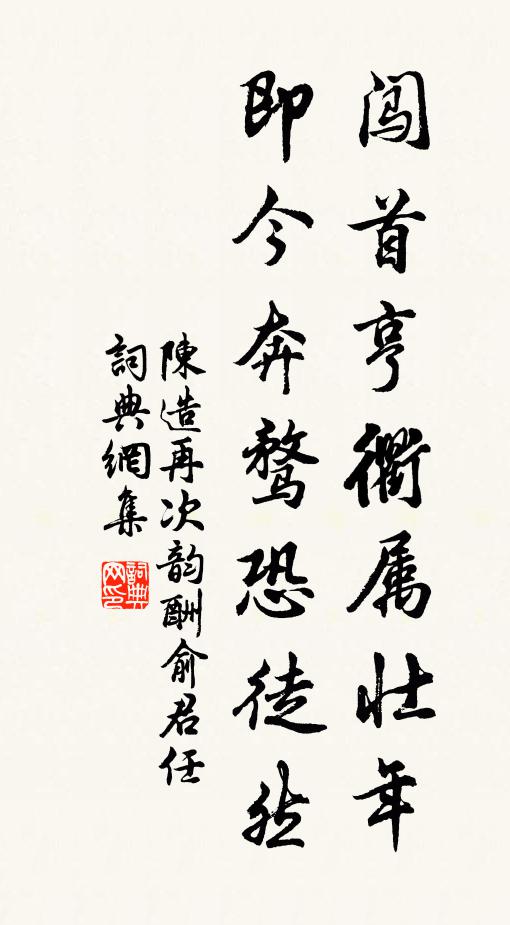 闯首亨衢属壮年
即今奔骛恐徒然
陳造再次韵酬俞君任
詞典網集
詞典网印